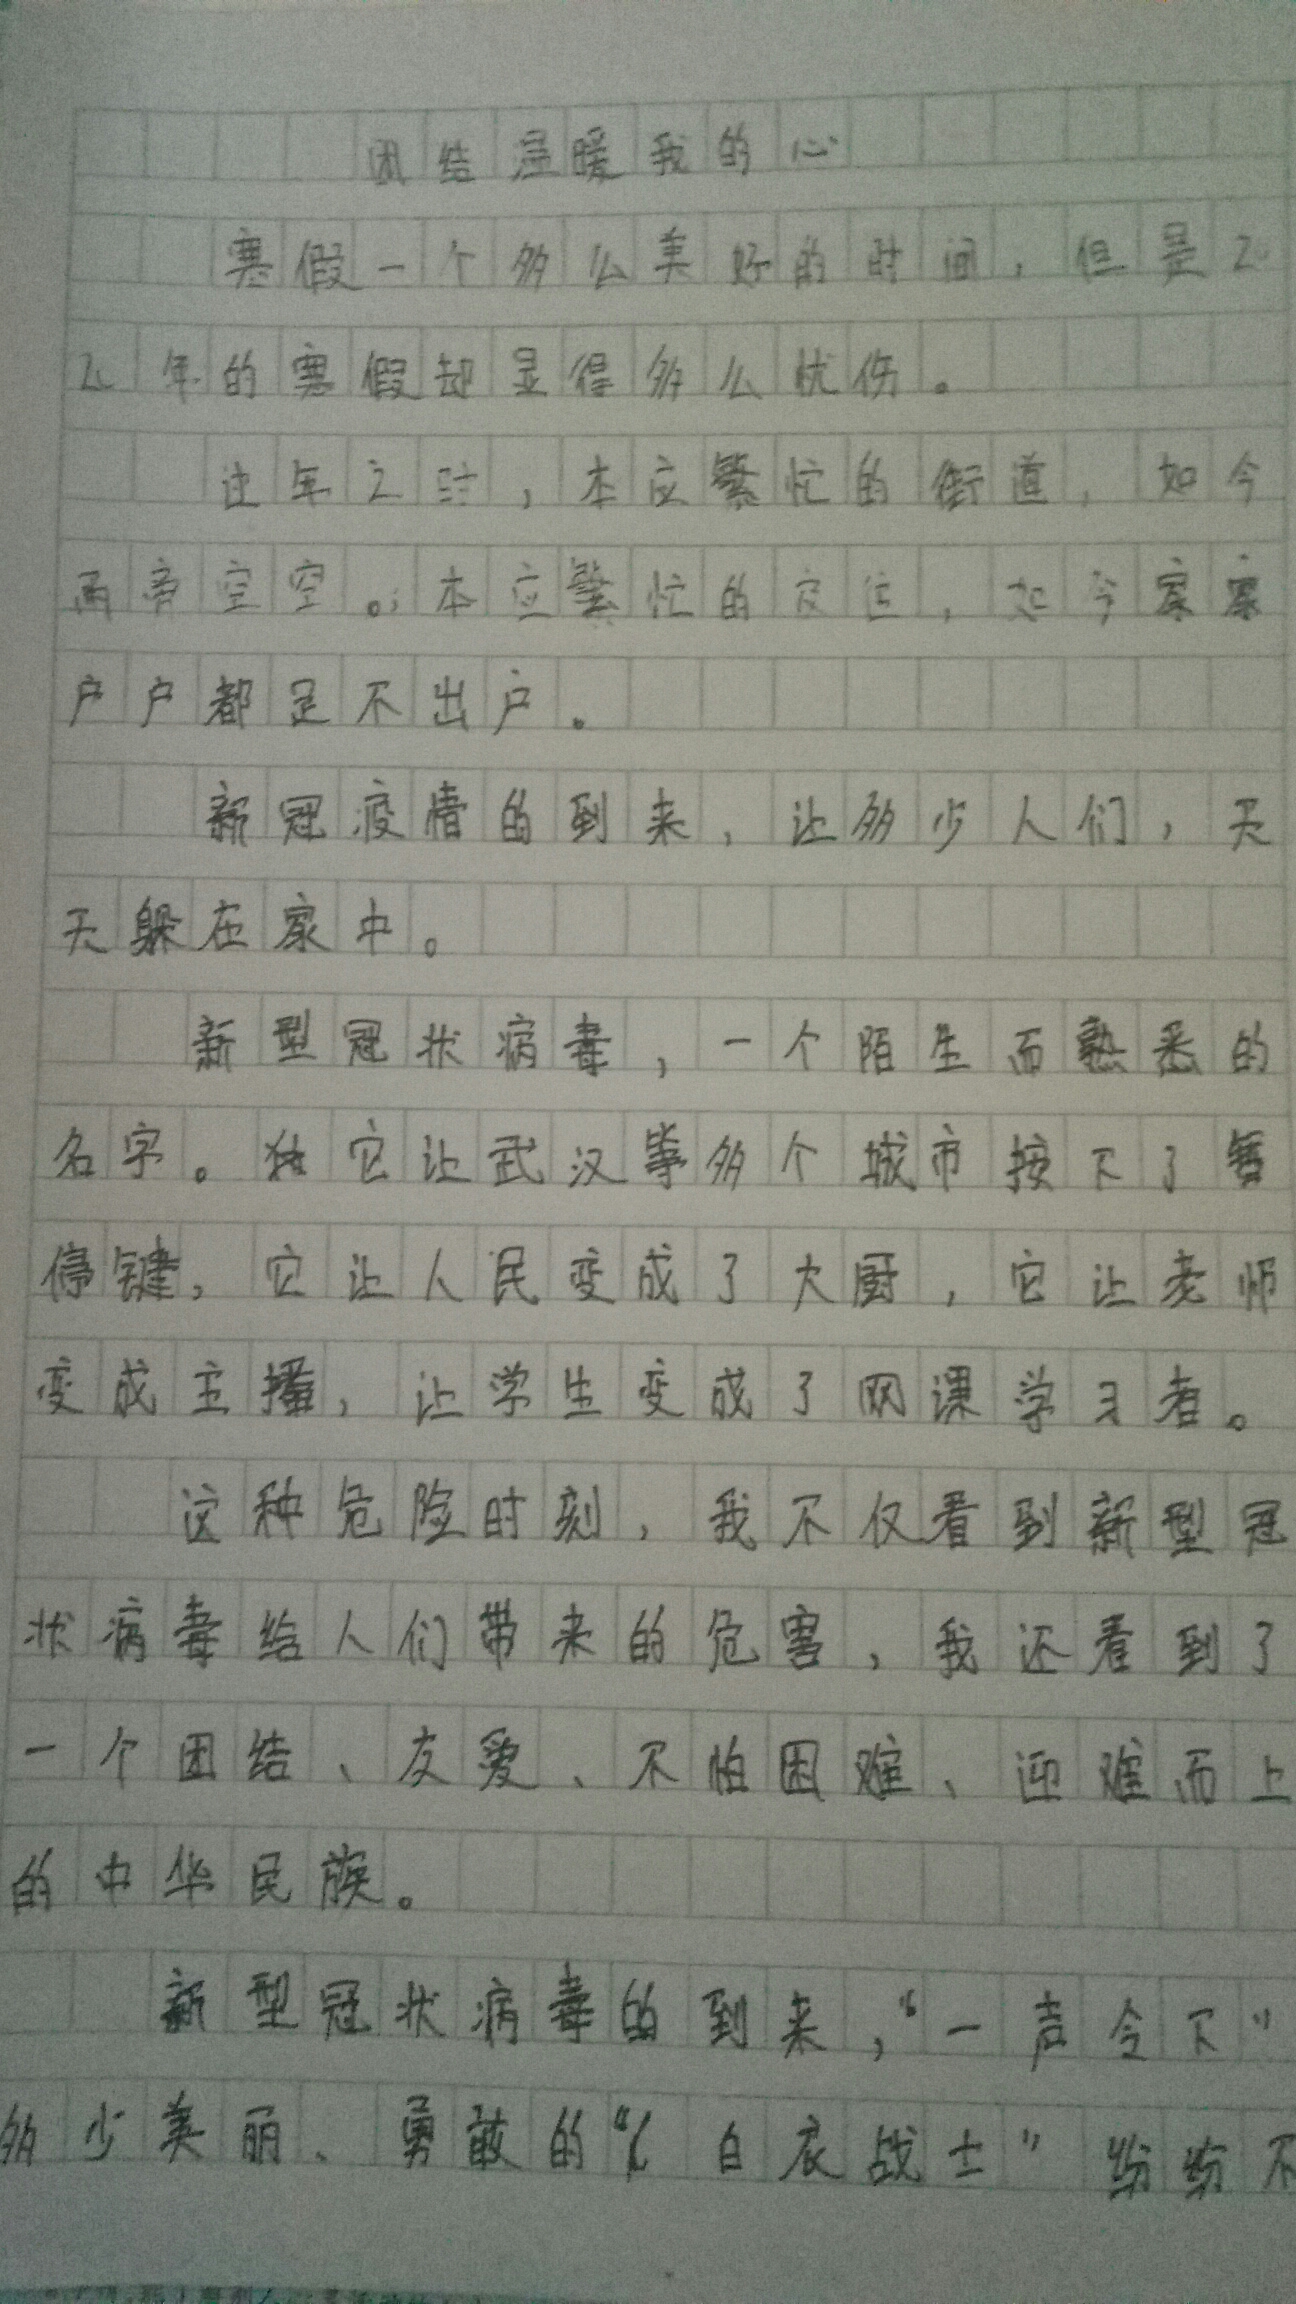 团结温暖我的心
寒假一个多么美好的时间，但是20
20年的寒假却显得多么忧伤。
过年之时，本应繁忙的街道，如今
而帝空空。本应繁忙的，如今家家
户户都足不出户。
新冠疫情的到来，让多少人们，天
天躲在家中。
新型冠状病毒，一个陌生而熟悉的
名字。它让武汉等多个城市按下了暂
停键，它让人民变成了大厨，它让老师
变成主播，让学生变成了网课学习者。
这种危险时刻，我不仅看到新型冠
状病毒给人们带来的危害，我还看到了
一个团结、友爱、不怕困难、迎难而上
的中华民族。
新型冠状病毒的到来，“一声令下”
多少美丽、勇敢的“白衣战士”纷纷不